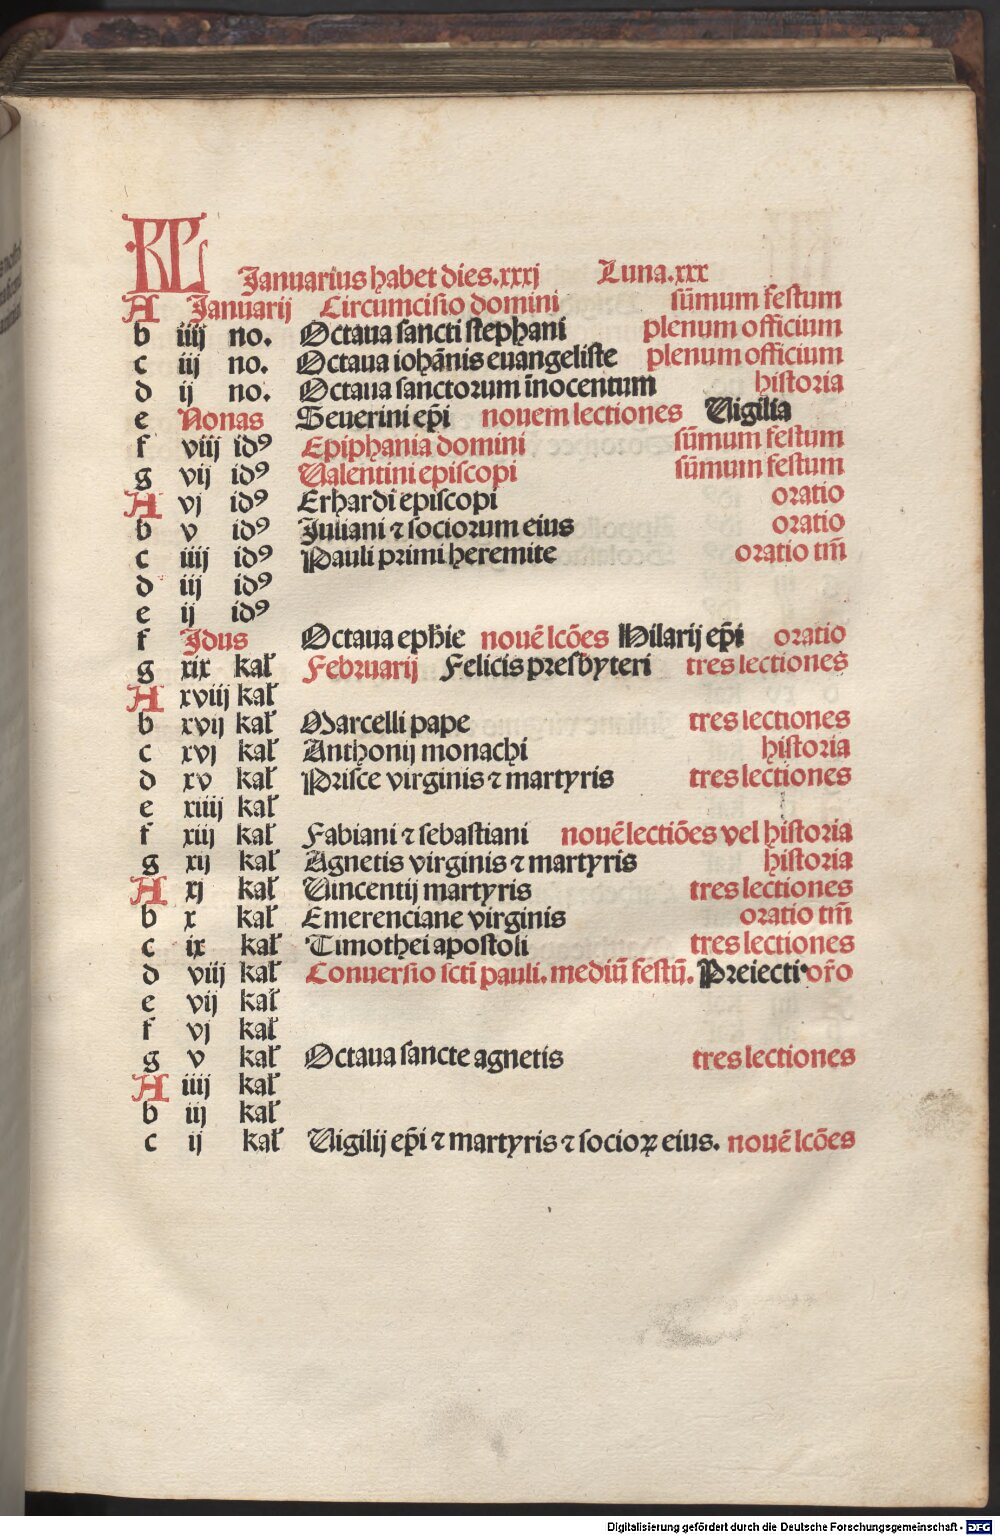 KL Januarius habet dies.xxxj Luna.xxx
A Januarij Circumcisio domini sūmum festum
b iiij no. Octaua sancti stephani plenum officium
c iij no. Octaua iohānis euangeliste plenum officium
d ij no. Octaua sanctorum īnocentum historia
e Nonas Seuerini ep̄i nouem lectiones Uigilia
f viij idꝰ Epiphania domini sūmum festum
g vij idꝰ Ualentini episcopi sūmum festum
A vj idꝰ Erhardi episcopi oratio
b v idꝰ Juliani ⁊ sociorum eius oratio
c iiij idꝰ Pauli primi heremite oratio tm̄
d iij idꝰ
e ij idꝰ
f Jdus Octaua eph̄ie nouē lcōes Hilarij ep̄i oratio
g xix kal̄ Februarij Felicis presbyteri tres lectiones
A xviij kal̄
b xvij kal̄ Marcelli pape tres lectiones
c xvj kal̄ Anthonij monachi historia
d xv kal̄ Prisce virginis ⁊ martyris tres lectiones
e xiiij kal̄
f xiij kal̄ Fabiani ⁊ sebastiani nouē lectiōes vel historia
g xij kal̄ Agnetis virginis ⁊ martyris historia
A xj kal̄ Uincentij martyris tres lectiones
b x kal̄ Emerenciane virginis oratio tm̄
c ix kal̄ Timothei apostoli tres lectiones
d viij kal̄ Conuersio sctī pauli. mediū festū. Preiecti or̄o
e vij kal̄
f vj kal̄
g v kal̄ Octaua sancte agnetis tres lectiones
A iiij kal̄
b iij kal̄
c ij kal̄ Uigilij ep̄i ⁊ martyris ⁊ socioꝝ eius. nouē lcōes
Digitalisierung gefördert durch die Deutsche Forschungsgemeinschaft - DFG